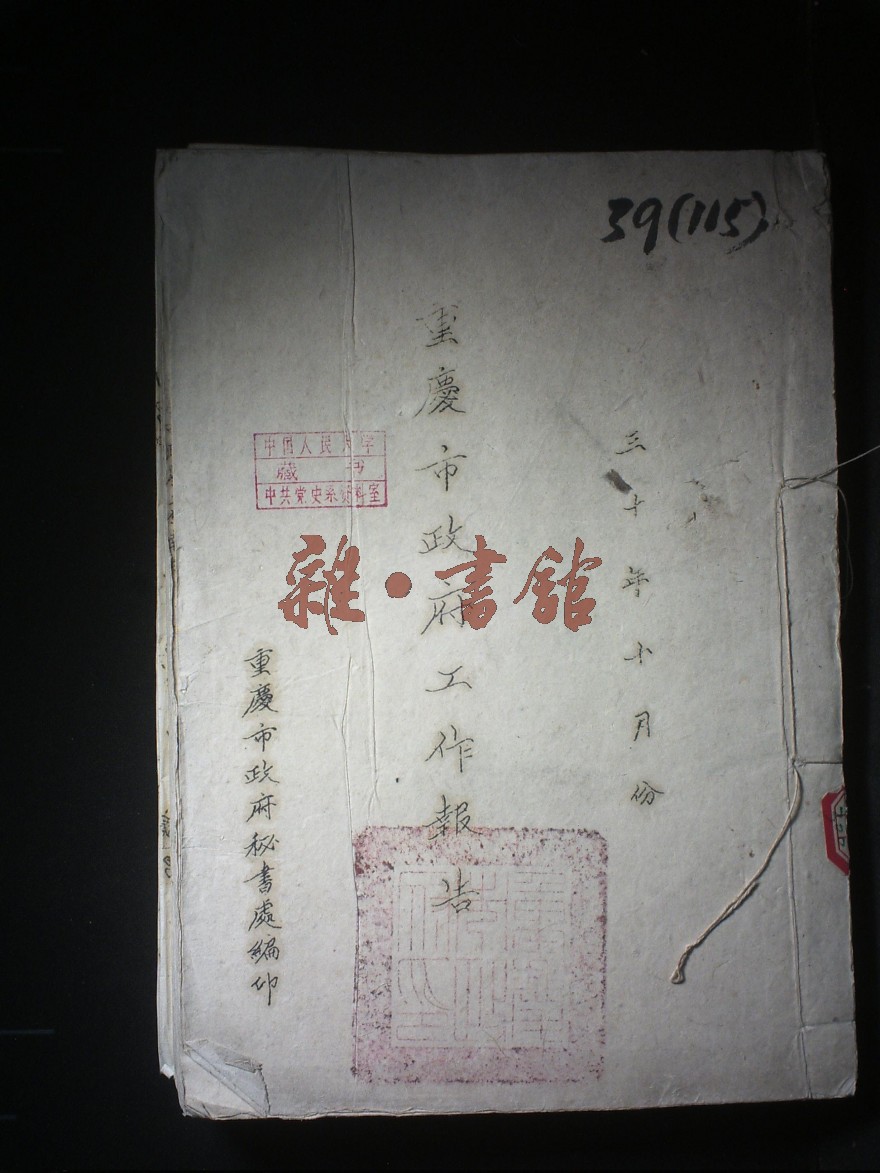 39(115)
三十年十月份
重慶市政府工作報告
中国人民大学
藏书
中共党史系资料室
雜·書舘
重慶市政府秘書處編印